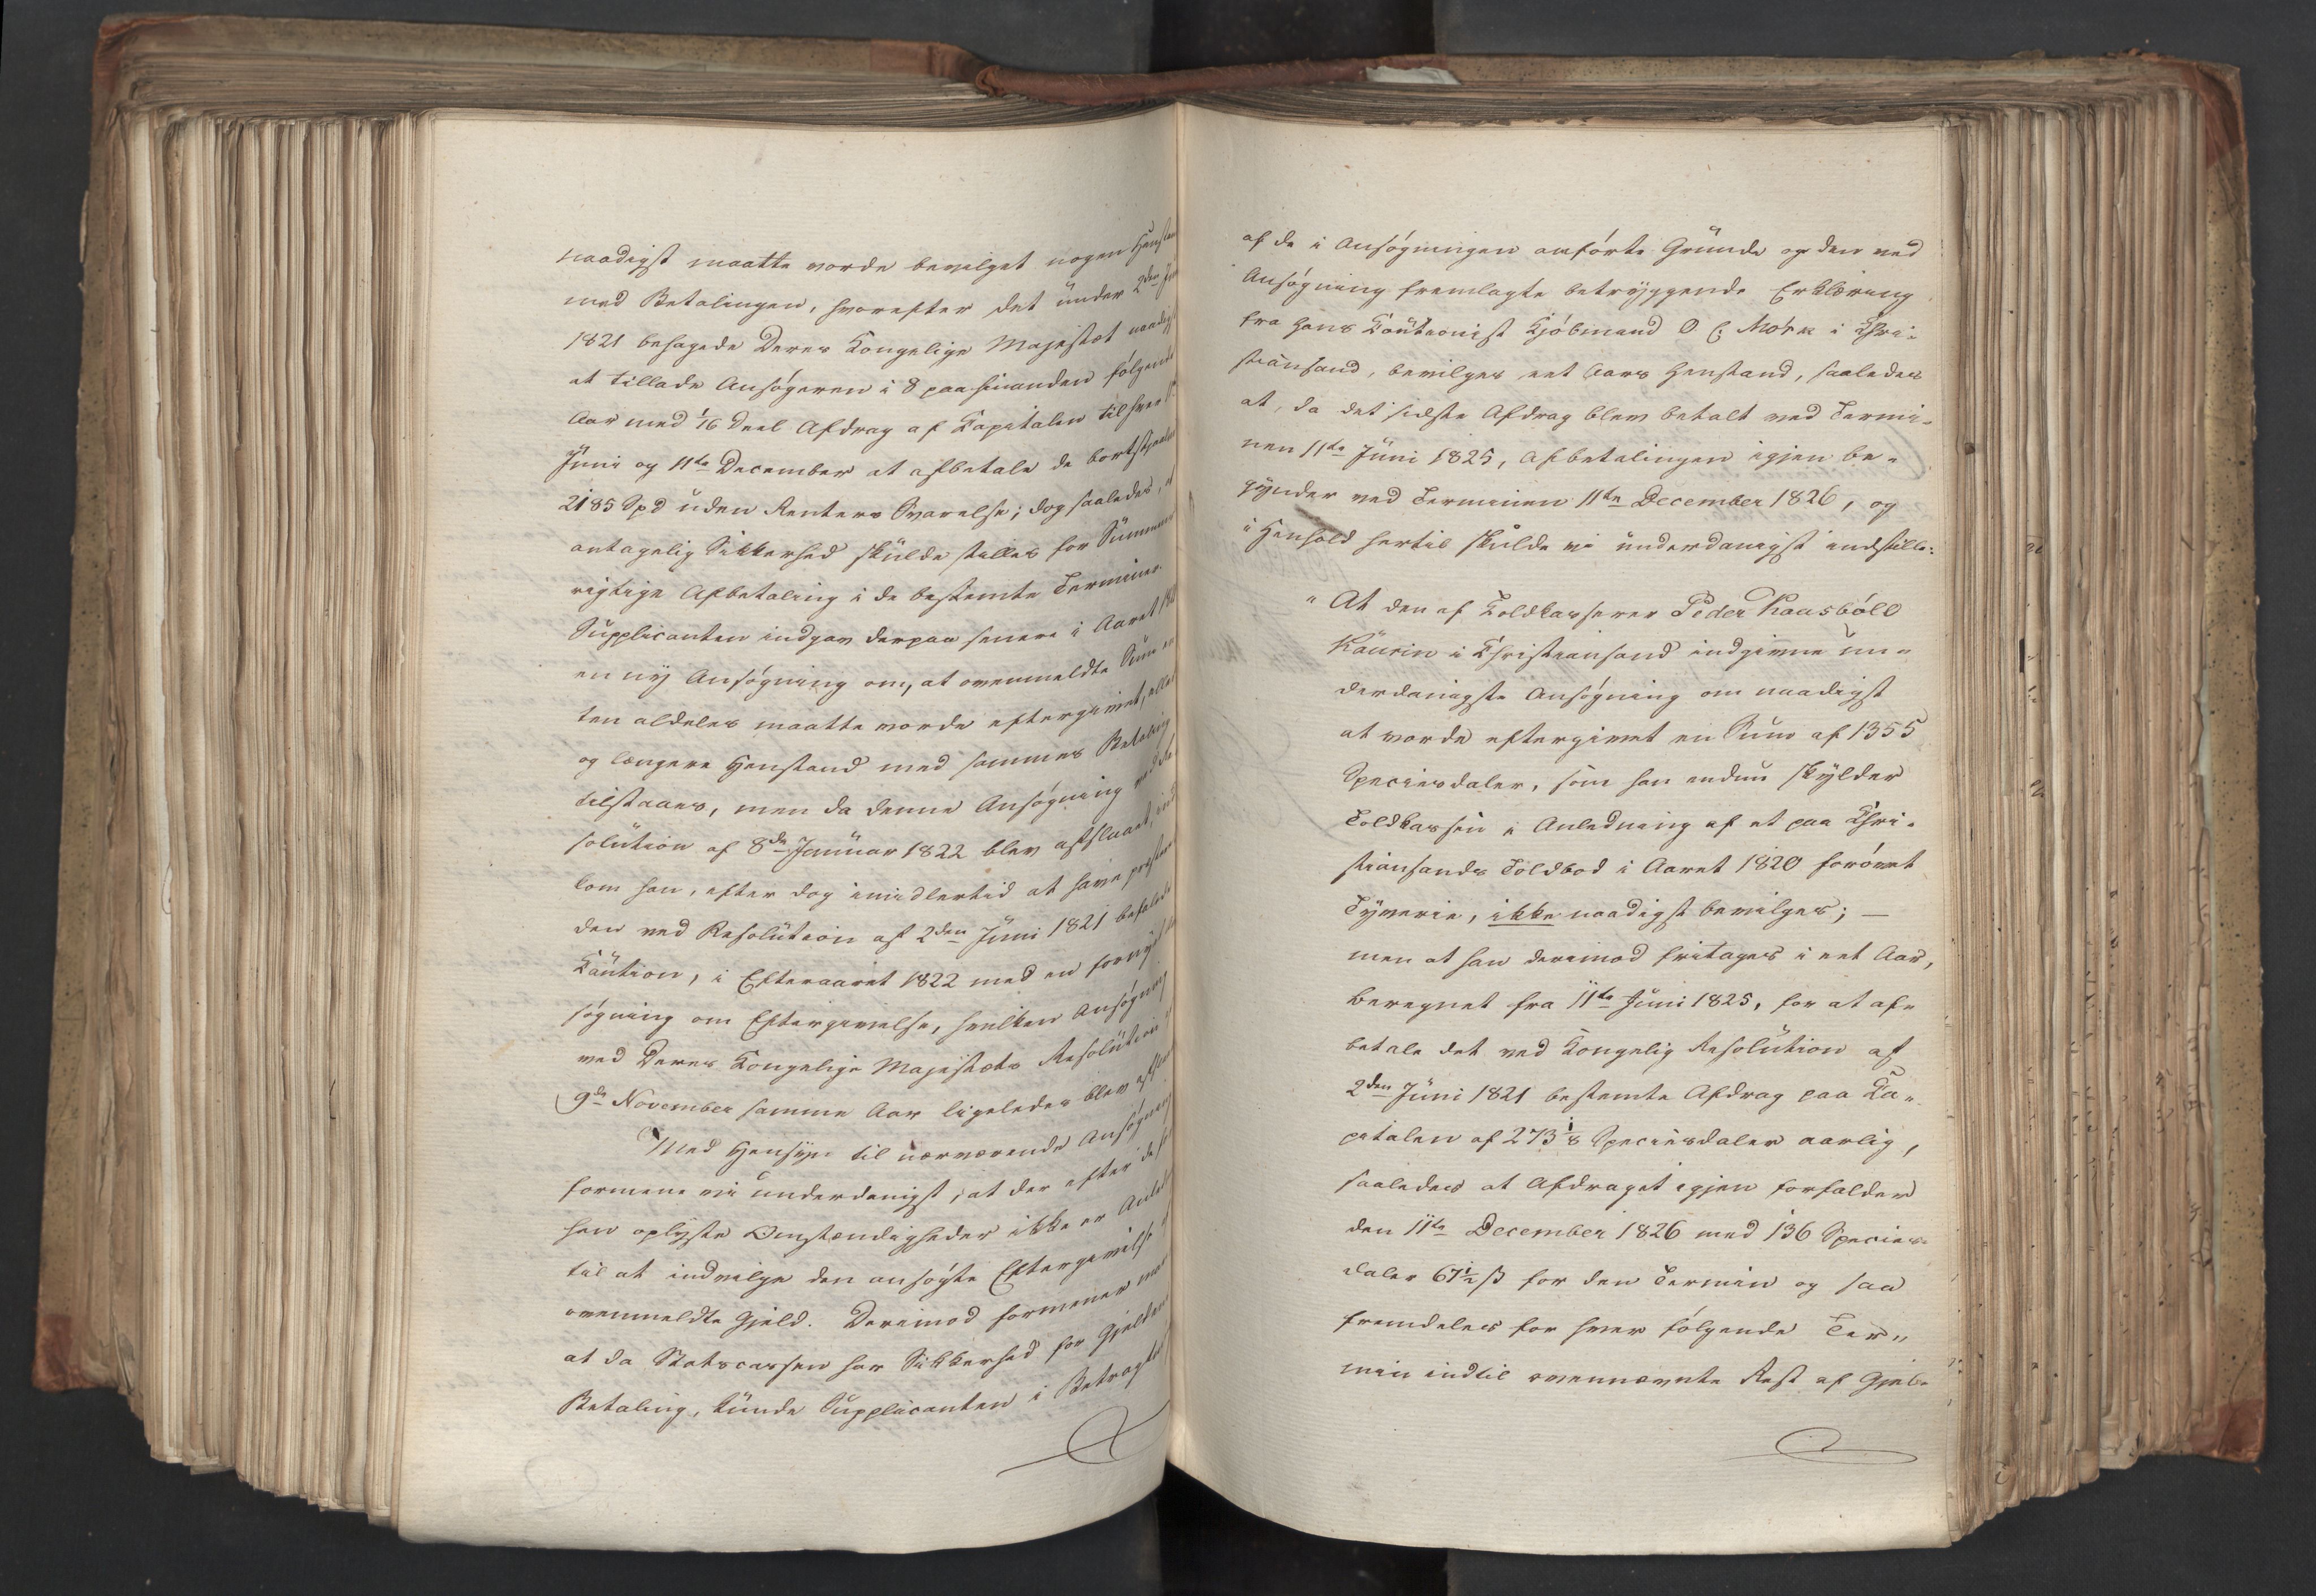 naadigst maatte vorde bevilget nogen Henstan
med Betalingen, hvorefter det under 2den Jun
1821 behagede Deres Kongelige Majestæt naadigst
at tillade Ansøgeren i 8 paa hinanden følgende
Aar med 1/16 Deel Afdrag af Capitalen til hver
Juni og 11te December at afbetale de bortstjaalne
2185 Spd uden Renters Svarelse; dog saaledes, at
antagelig Sikkerhed skulde stilles for Summens
rigtige Afbetaling i de bestemte Terminer.
Supplicanten indgav derpaa senere i Aaret 18
en ny Ansøgning om, at ovenmeldte Sum en
ten aldeles maatte vorde eftergivet, eller
og længere Henstand med sammes Betaling
tilstaaes, men da denne Ansøgning ved Re
solution af 8de Januar 1822 blev afslaaet, ind
kom han, efter dog imidlertid at have præstere
den ved Resolution af 2den Juni 1821 befalede
Caution, i Efteraaret 1822 med en fornyet An
søgning om Eftergivelse, hvilken Ansøgning
ved Deres Kongelige Majestæts Resolution
9de November samme Aar ligeledes blev afslaa
Med Hensyn til nærværende Ansøgning
formene vi underdanigst, at der efter de
hen oplyste Omstændigheder ikke er Anled
til at indvilge den ansøgte Eftergivelse
ovenmeldte Gjeld. Derimod formener man
at da Statscassen har Sikkerhed for Gjeldens
Betaling, kunde Supplicanten i Betragtn
af de i Ansøgningen anførte Grunde og den ved
Ansøgning fremlagte betryggende Erklæring
fra hans Cautionist Kjøbmand O C Mørk i Chri-
stiansand, bevilges eet Aars Henstand, saaledes
at, da det sidste Afdrag blev betalt ved Termi-
nen 11te Juni 1825, Afbetalingen igjen be-
gynder ved Terminen 11te December 1826, og
i Henhold hertil skulde vi underdanigst indstille:
"At den af Toldkasserer Peder Kaasbøll
Kaurin i Christiansand indgivne un-
derdanigste Ansøgning om naadigst
at vorde eftergivet en Sum af 1355
Speciesdaler, som han endnu skylder
Toldkassen i Anledning af et paa Chri-
stiansands Toldbod i Aaret 1820 forøvet
Tyverie, ikke naadigst bevilges; —
men at han derimod fritages i eet Aar,
beregnet fra 11te Juni 1825, for at af-
betale det ved Kongelig Resolution af
2den Juni 1821 bestemte Afdrag paa Ca-
pitalen af 273 1/8 Speciesdaler aarlig,
saaledes at Afdraget igjen forfalder
den 11te December 1826 med 136 Species-
daler 67 1/2 ß for den Termin og saa
fremdeles for hver følgende Ter-
min indtil ovennævnte Rest af Gjel-